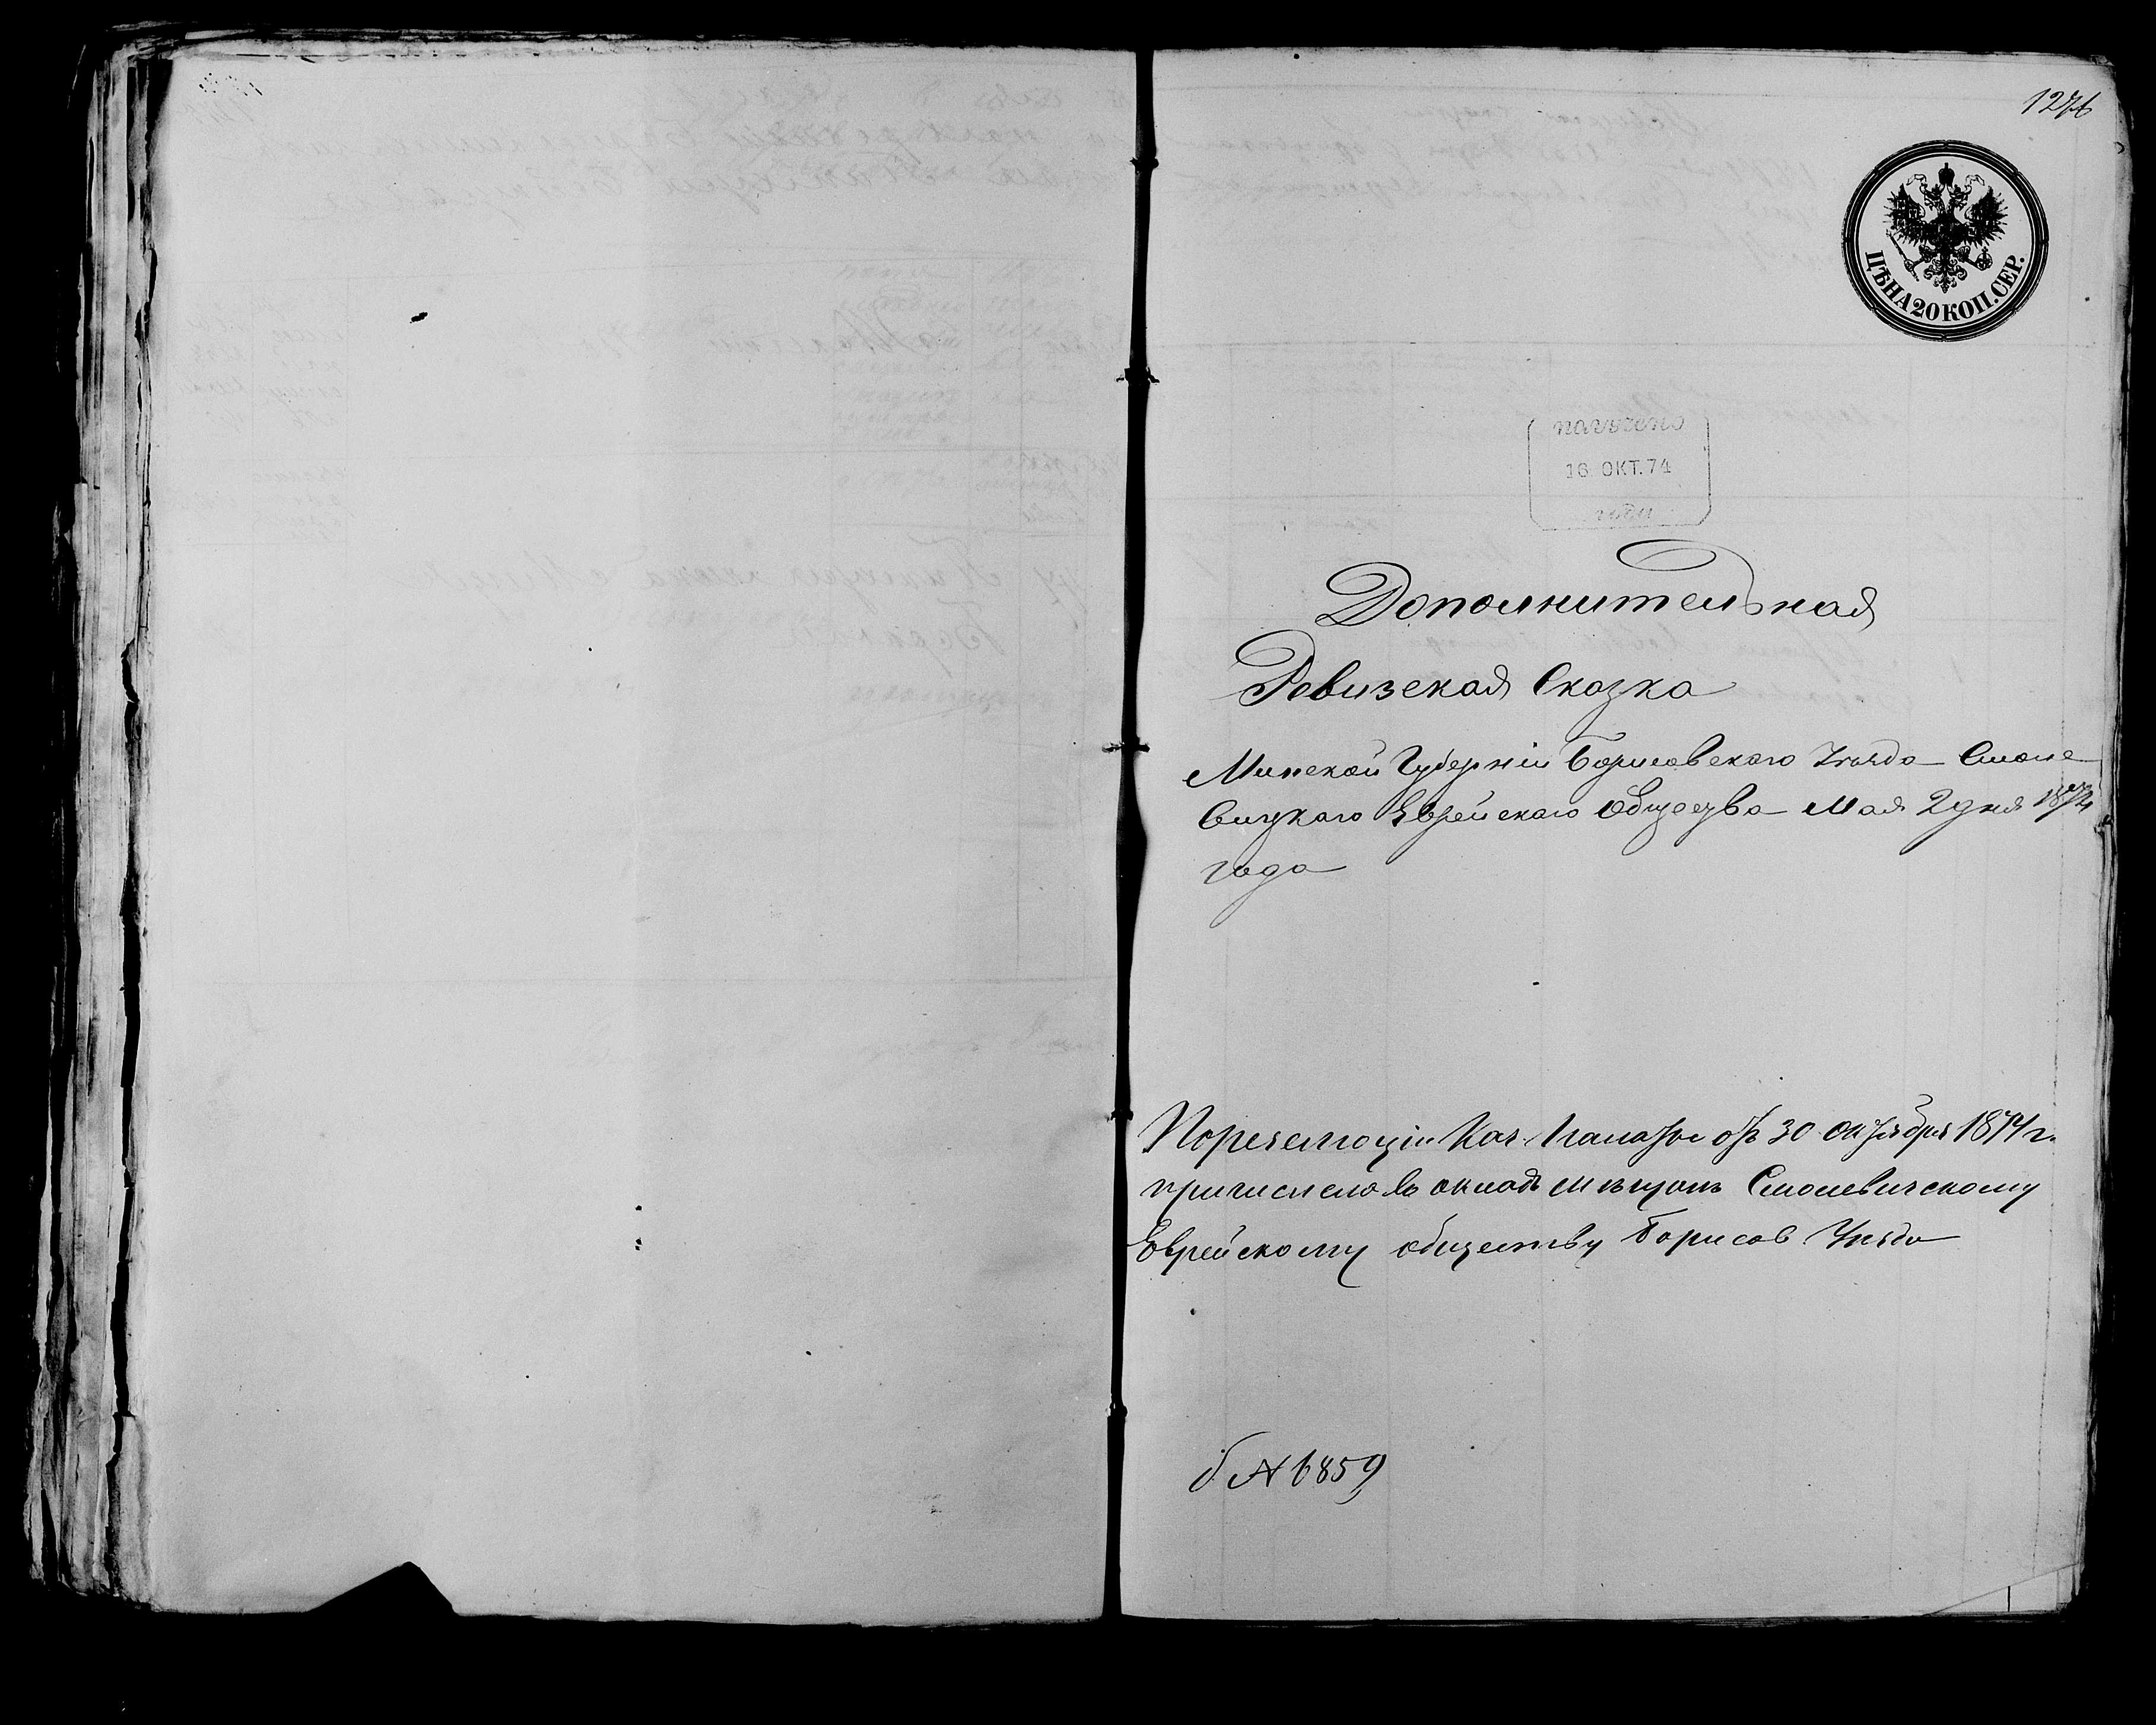 1276
ЦѢНА 20 КОП. СЕР.
получено
16 ОКТ. 74
года
Дополнительная
Ревизская Сказка
Минской Губерніи Борисовскаго Уѣзда Смоле
вицкаго Еврейскаго Общества Мая 2 дня 1874
года
По резолюціи Каз. Палаты отъ 30 октября 1874 г.
причислено въ окладъ мѣщанъ Смолевичскому
Еврейскому обществу Борисов Уѣзда
№ 6859